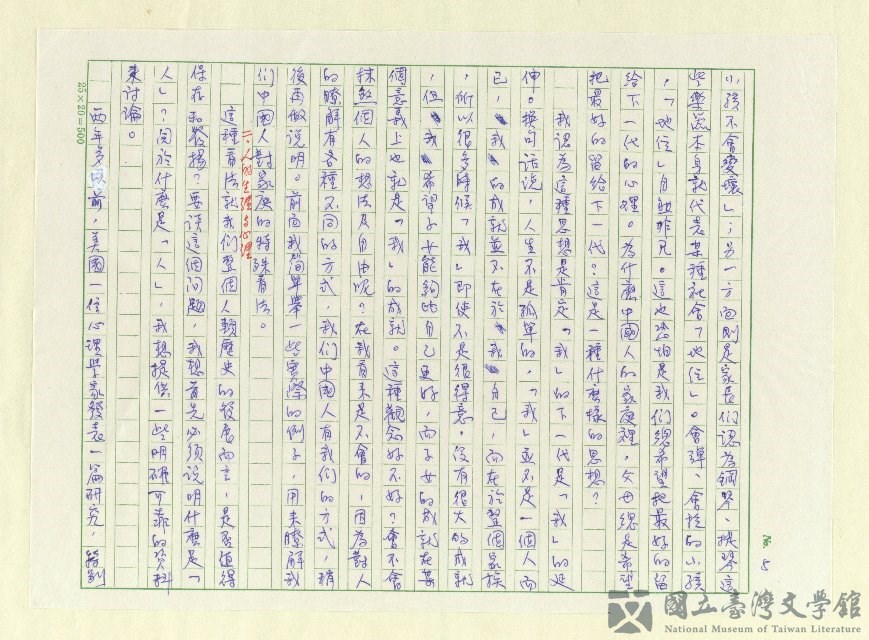 No. 5
小孩不會變壞」；另一方面則是家長們認為鋼琴、提琴這
些樂器本身就代表某種社會「地位」。會彈、會拉的小孩
，「地位」自動非凡。這也恐怕是我們總希望把最好的留
給下一代的心理。為什麼中國人的家庭裡，父母總是希望
把最好的留給下一代？這是一種什麼樣的思想？
我認為這種思想是肯定「我」的下一代是「我」的延
伸。換句話說，人生不是孤單的，「我」並不是一個人而
已，我的成就並不在於我自己，而在於整個家族
，所以很多時候「我」即使不是很得意。沒有很大的成就
，但我希望子女能夠比自己更好，而子女的成就在某
個意義上也就是「我」的成就。這種觀念好不好？會不會
抹煞個人的想法及自由呢？在我看來是不會的，因為對人
的瞭解有各種不同的方式，我們中國人有我們的方式，稍
後再做說明。前面我簡單舉一些實際的例子，用來瞭解我
們中國人對家庭的特殊看法。
二、人的生理与心理
這種看法就我們整個人類歷史的發展而言，是否值得
保存和發揚？要談這個問題，我想首先必須說明什麼是「
人」？關於什麼是「人」，我想提供一些明確可靠的資料
來討論。
兩年多以前，美國一位心理學家發表一篇研究，特別
25×20=500
國立臺灣文學館
National Museum of Taiwan Literature